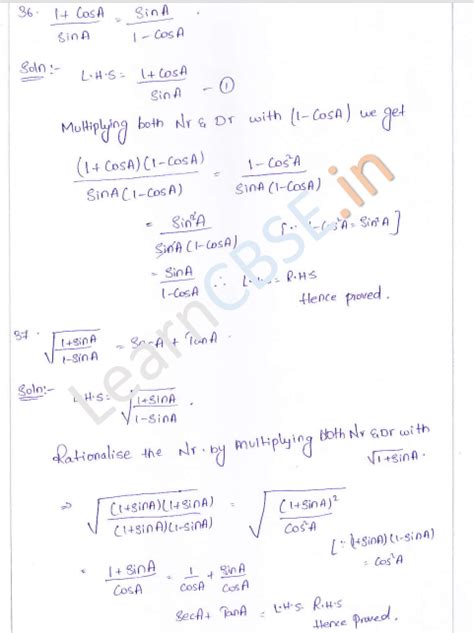 36. (1 + CosA)/SinA = SinA/(1 - CosA)
Soln:- L.H.S = (1 + CosA)/SinA - ①
Multiplying both Nr & Dr with (1 - CosA) we get
((1 + CosA)(1 - CosA))/(SinA(1 - CosA)) = (1 - Cos²A)/(SinA(1 - CosA))
= Sin²A/(SinA(1 - CosA)) [∵ 1 - Cos²A = Sin²A]
= SinA/(1 - CosA) ∴ L.H.S = R.H.S
Hence proved.
37. √((1 + SinA)/(1 - SinA)) = SecA + TanA.
Soln:- L.H.S = √((1 + SinA)/(1 - SinA)).
Rationalise the Nr. by multiplying both Nr & Dr with
√(1 + SinA).
⇒ √(((1 + SinA)(1 + SinA))/((1 + SinA)(1 - SinA))) = √((1 + SinA)²/Cos²A)
[∵ (1 + SinA)(1 - SinA)
= Cos²A
= (1 + SinA)/CosA = 1/CosA + SinA/CosA
SecA + TanA = L.H.S R.H.S
Hence proved.
LearnCBSE.in